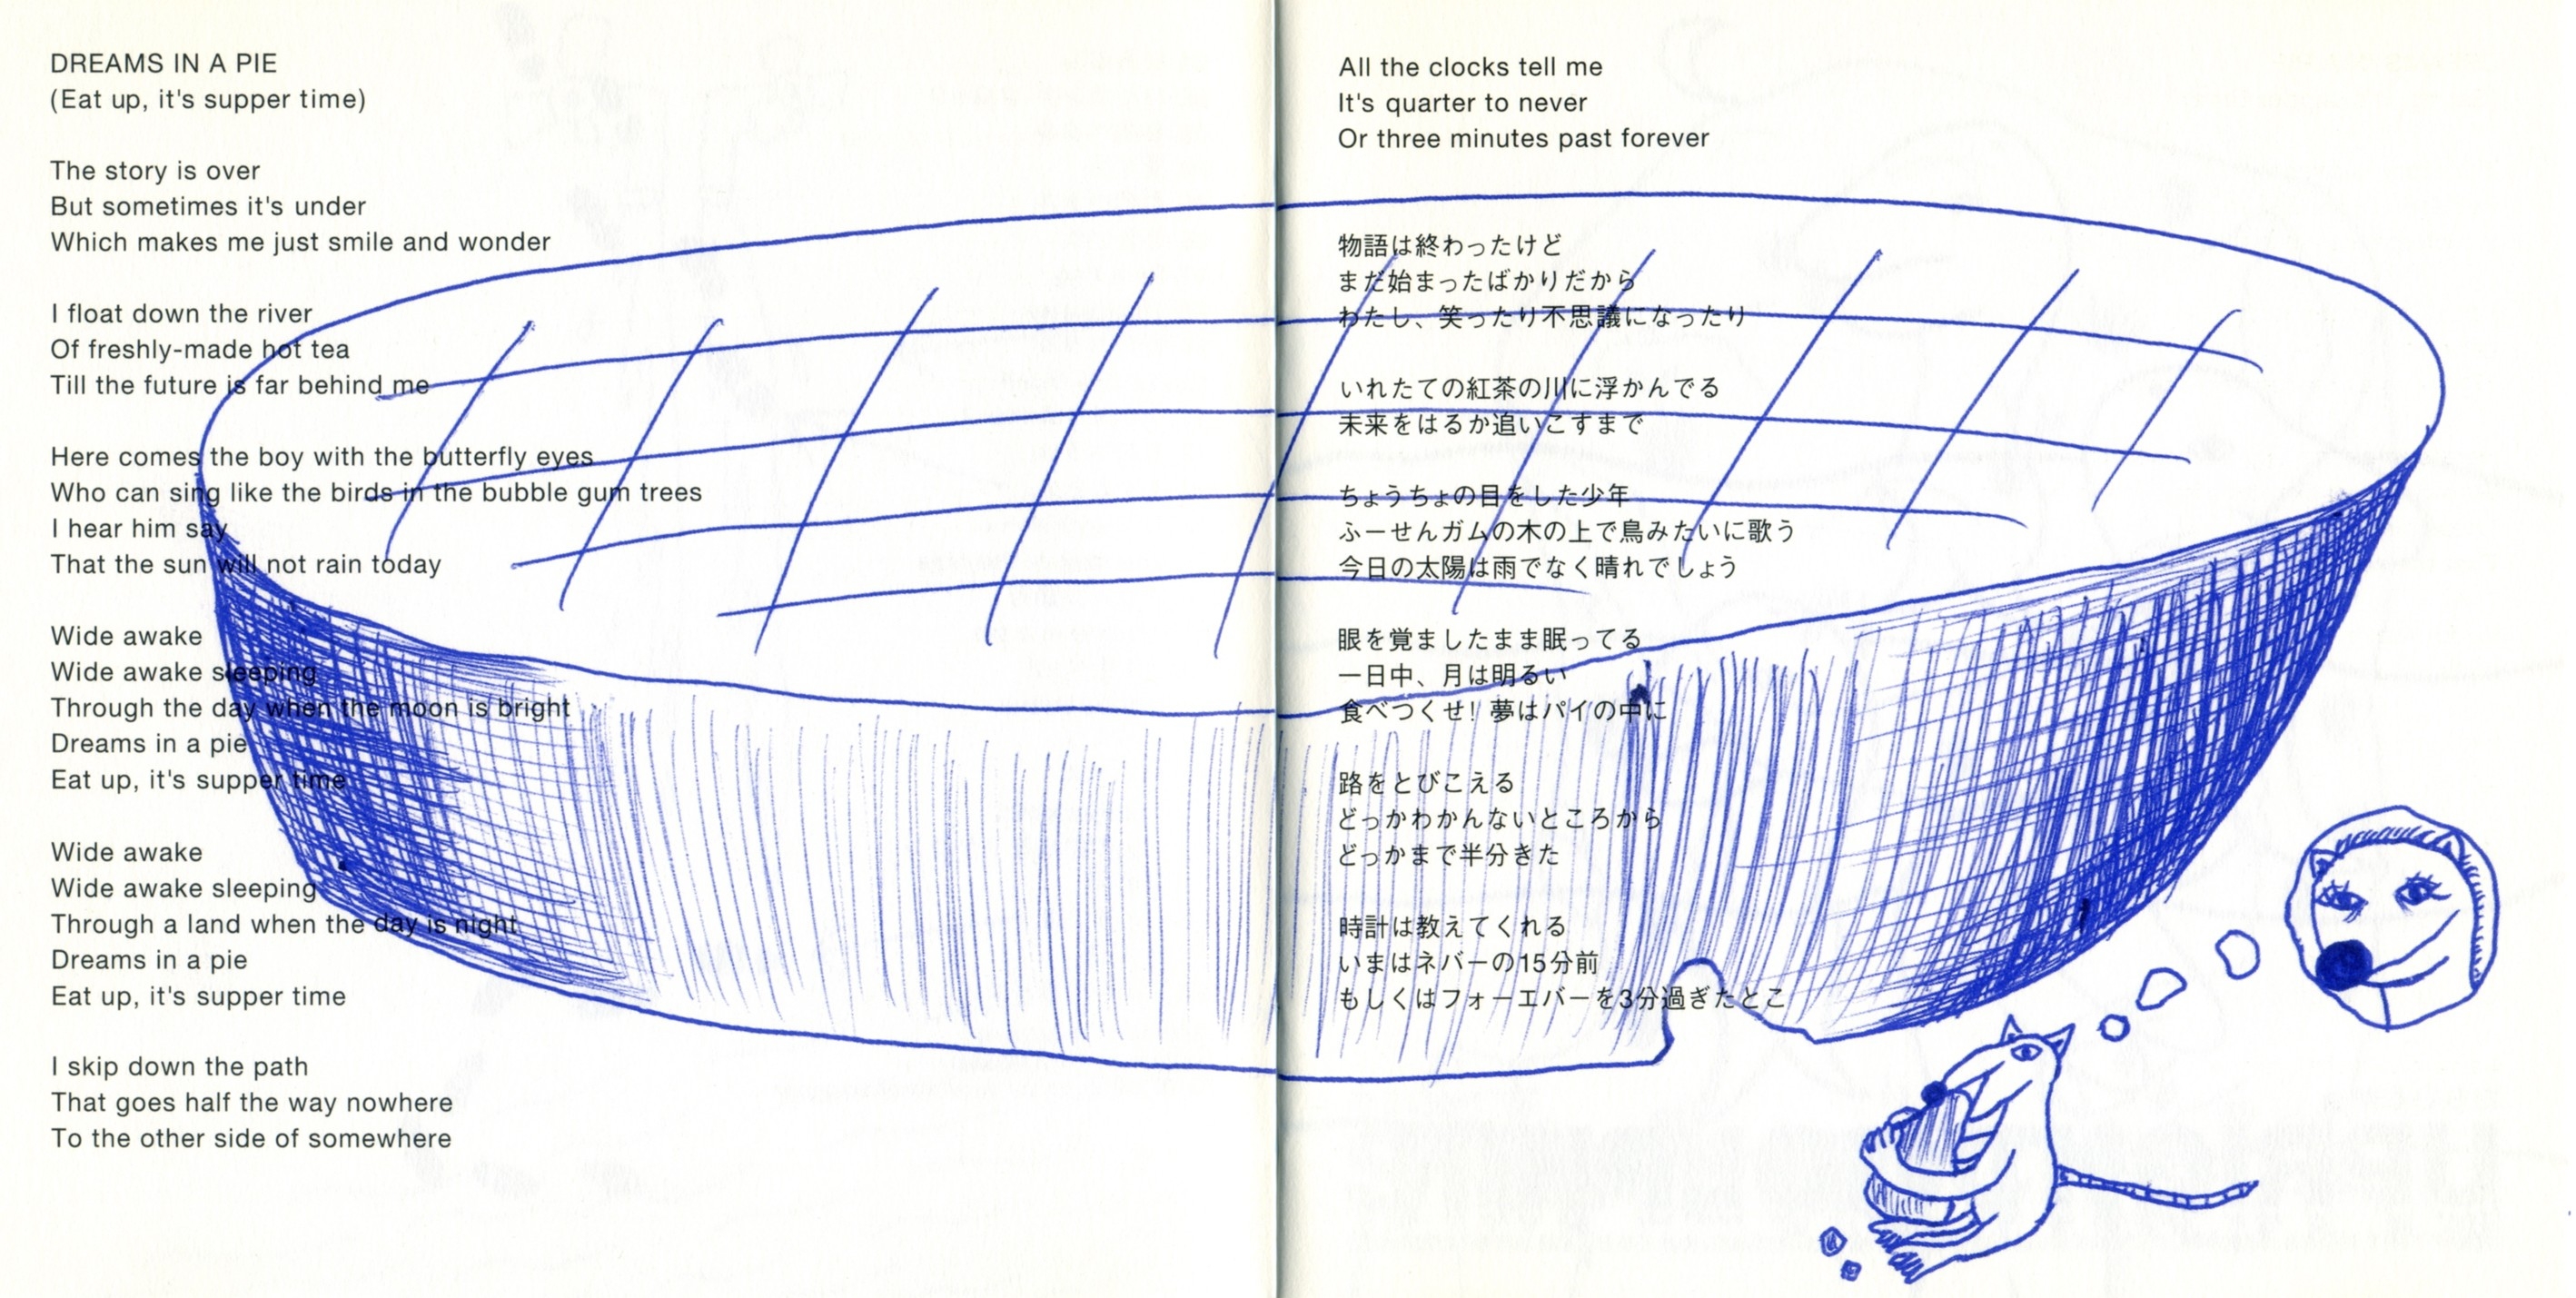 DREAMS IN A PIE
(Eat up, it's supper time)
The story is over
But sometimes it's under
Which makes me just smile and wonder
I float down the river
Of freshly-made hot tea
Till the future is far behind me
Here comes the boy with the butterfly eyes
Who can sing like the birds in the bubble gum trees
I hear him say
That the sun will not rain today
Wide awake
Wide awake sleeping
Through the day when the moon is bright
Dreams in a pie
Eat up, it's supper time
Wide awake
Wide awake sleeping
Through a land when the day is night
Dreams in a pie
Eat up, it's supper time
I skip down the path
That goes half the way nowhere
To the other side of somewhere
All the clocks tell me
It's quarter to never
Or three minutes past forever
物語は終わったけど
まだ始まったばかりだから
わたし、笑ったり不思議になったり
いれたての紅茶の川に浮かんでる
未来をはるか追いこすまで
ちょうちょの目をした少年
ふーせんガムの木の上で鳥みたいに歌う
今日の太陽は雨でなく晴れでしょう
眼を覚ましたまま眠ってる
一日中、月は明るい
食べつくせ! 夢はパイの中に
路をとびこえる
どっかわかんないところから
どっかまで半分きた
時計は教えてくれる
いまはネバーの15分前
もしくはフォーエバーを3分過ぎたとこ